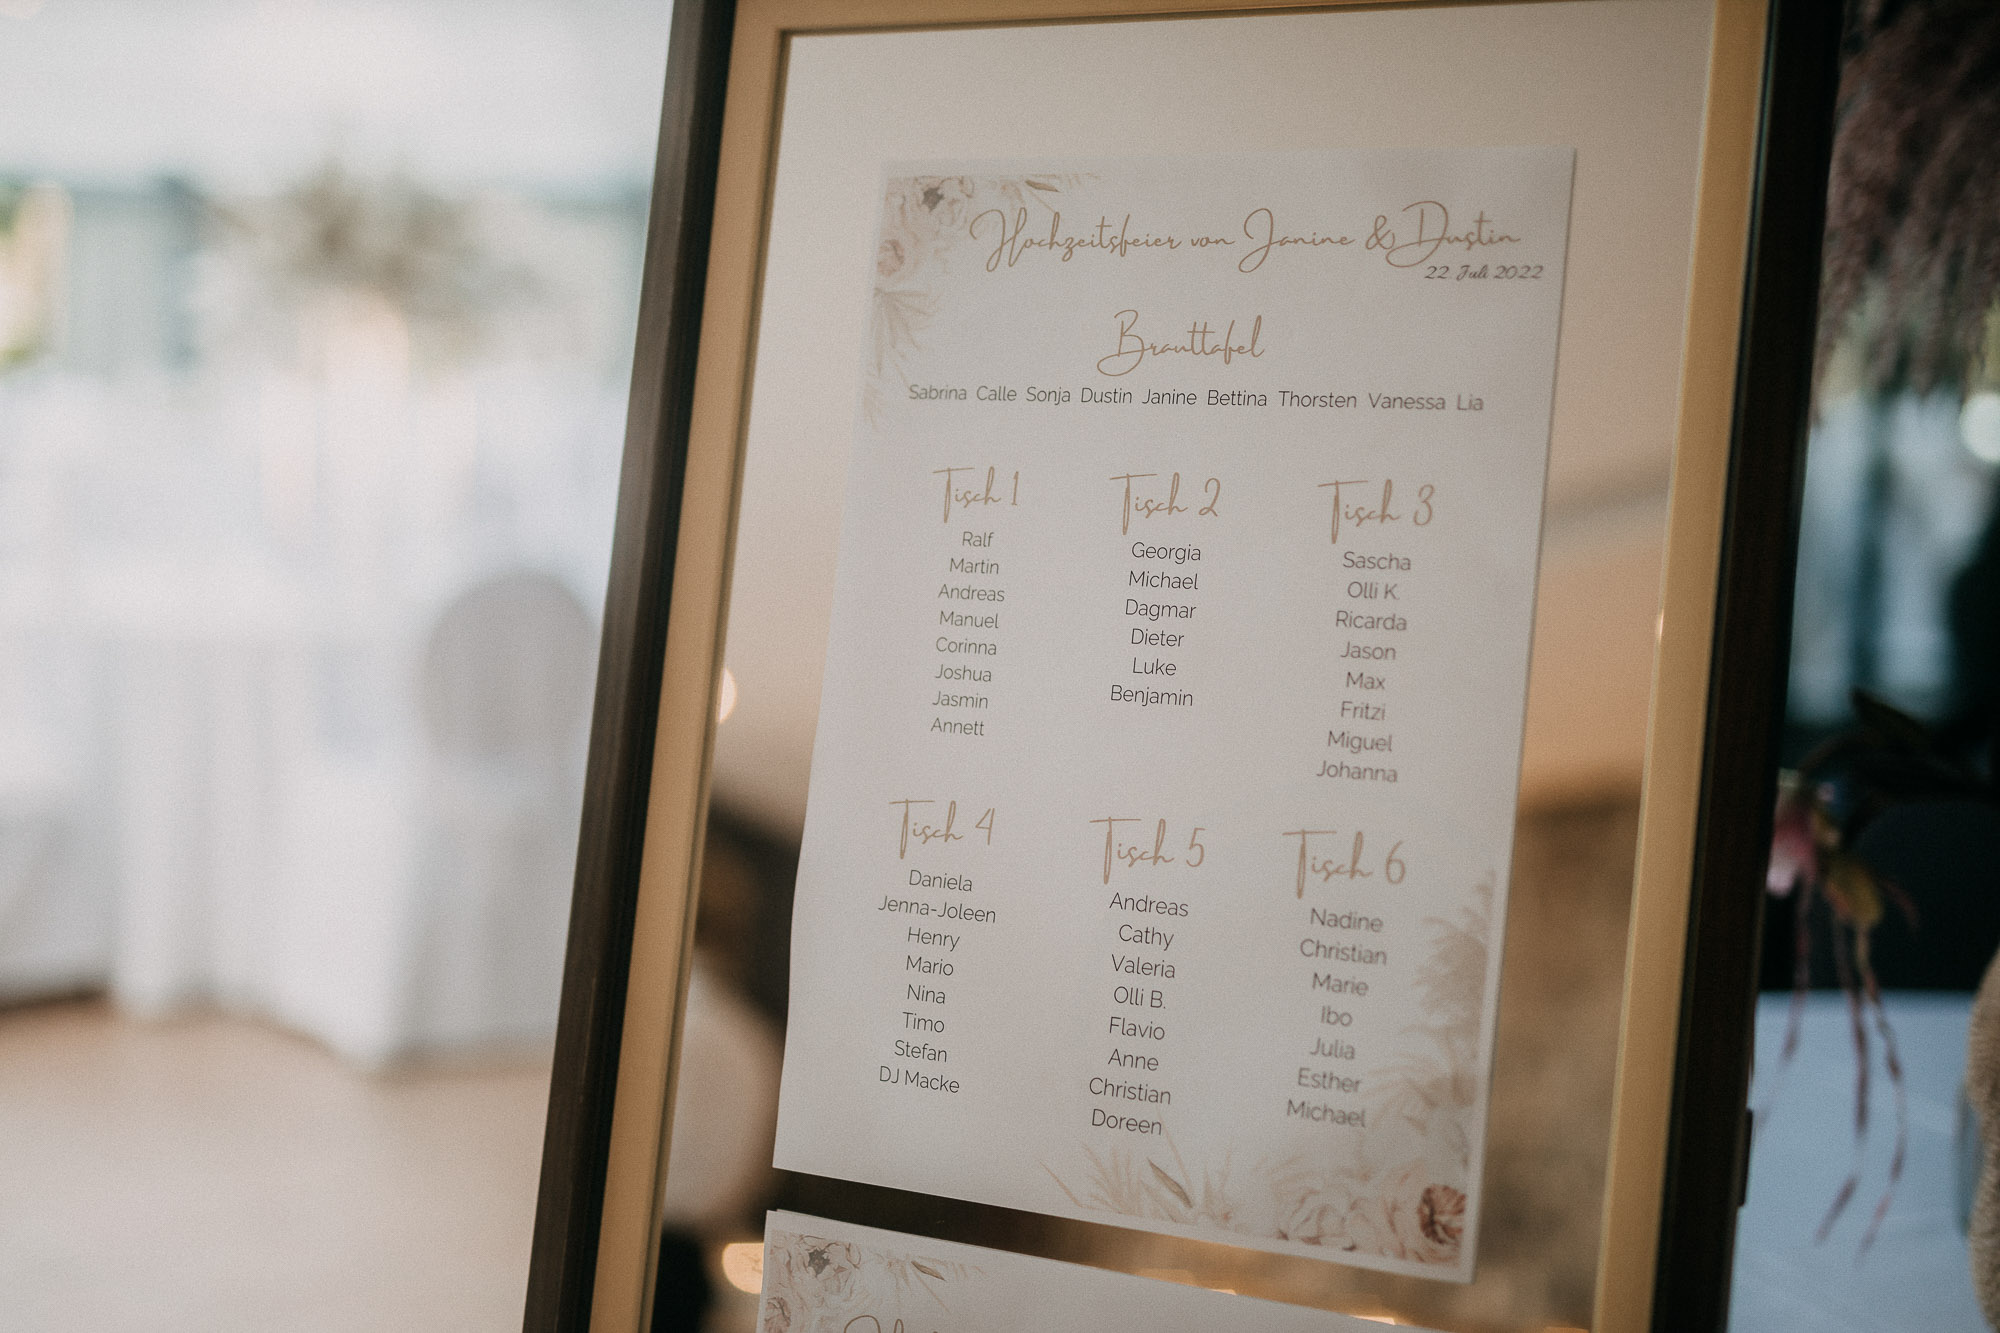 Hochzeitsfeier von Janine & Dustin
22. Juli 2022
Brauttafel
Sabrina Calle Sonja Dustin Janine Bettina Thorsten Vanessa Lia
Tisch 1
Ralf
Martin
Andreas
Manuel
Corinna
Joshua
Jasmin
Annett
Tisch 2
Georgia
Michael
Dagmar
Dieter
Luke
Benjamin
Tisch 3
Sascha
Olli K.
Ricarda
Jason
Max
Fritzi
Miguel
Johanna
Tisch 4
Daniela
Jenna-Joleen
Henry
Mario
Nina
Timo
Stefan
DJ Macke
Tisch 5
Andreas
Cathy
Valeria
Olli B.
Flavio
Anne
Christian
Doreen
Tisch 6
Nadine
Christian
Marie
Ibo
Julia
Esther
Michael